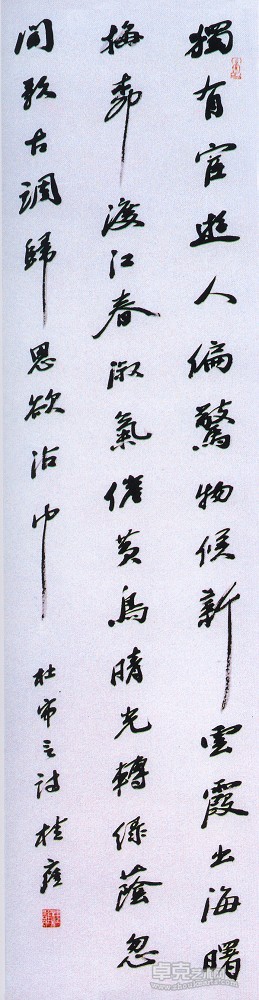 獨有宦遊人偏驚物候新雲霞出海曙
梅柳渡江春淑氣催黃鳥晴光轉綠蔭忽
聞歌古調歸思欲沾巾
杜审言詩桂雍
卓克艺术网